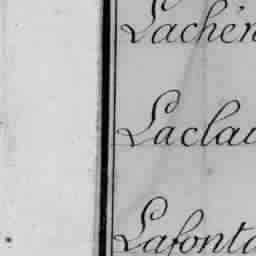 Lachén
Laclau
Lafonta